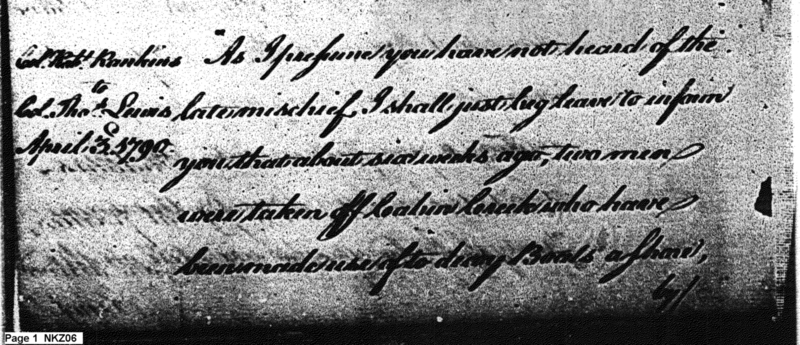 Col. Robt. Rankins
to
Col. Thos. Lewis
April 3d 1790.
"As I presume you have not heard of the
late mischief, I shall just beg leave to inform
you that about six weeks ago, two men
were taken off Cabin Creek who have
been made use of to decoy Boats ashore,
by/
Page 1 NKZ06